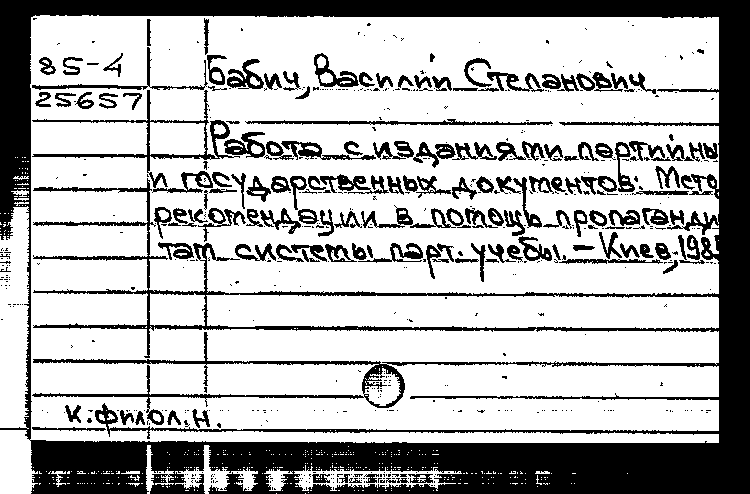 85-4
25657
Бабич, Василий Степанович.
Работа с изданиями партийны
и государственных документов: Мето
рекомендации в помощь пропаганди
там системы парт. учебы. – Киев, 198
к.филол.н.